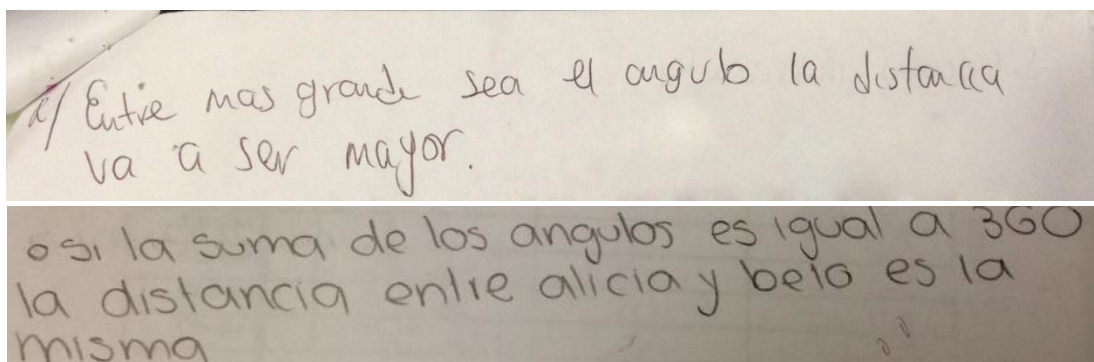 R/ Entre mas grande sea el angulo la distancia
va a ser mayor.
o si la suma de los angulos es igual a 360
la distancia entre alicia y beto es la
misma